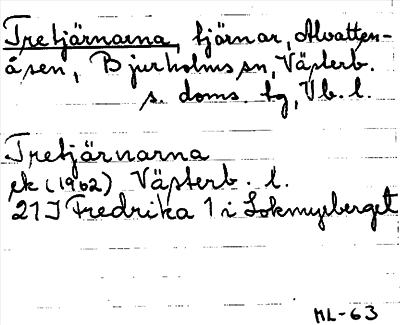 Tretjärnarna, tjärnar, Alvatten-
åsen, Bjurholms sn, Västerb.
s. doms. tg, Vb. l.
Tretjärnarna
ek (1962) Västerb. l.
21 I Fredrika 1 i Lokmyrberget
ML-63